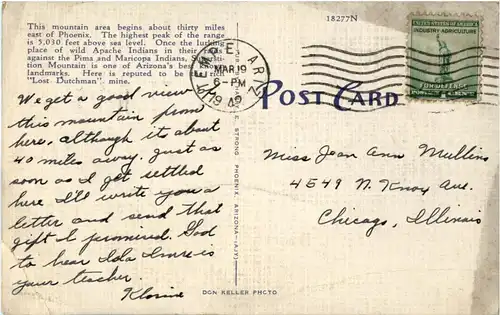 This mountain area begins about thirty miles
east of Phoenix. The highest peak of the range
is 5,030 feet above sea level. Once the lurking
place of wild Apache Indians in their raids
against the Pima and Maricopa Indians, Supersti-
tion Mountain is one of Arizona's best
landmarks. Here is reputed to be the rich
"Lost Dutchman" mine.
18277N
TEMPE, ARIZ.
MAR 19
6-PM
1942
UNITED STATES OF AMERICA
INDUSTRY AGRICULTURE
FOR DEFENSE
POST CARD
We get a good view
this mountain from
here, although its about
40 miles away. Just as
soon as I get settled
here I'll write you a
letter and send that
gift I promised. Glad
to hear Ida Imre is
your teacher.
E. STRONG PHOENIX, ARIZONA
DON KELLER PHOTO
Miss Jean Ann Mullins
4549 N. Knox Ave.
Chicago, Illinois